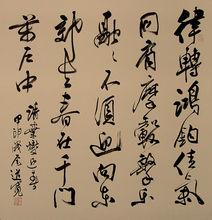 律轉鴻鈞佳氣
同肩摩轂擊樂
融々不須迎向東
郊去春在千門
萬戶中 清葉燮迎春